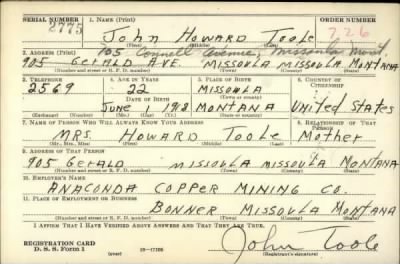 SERIAL NUMBER 1. NAME (Print) ORDER NUMBER
2775 John Howard Toole 726
(First) (Middle) (Last)
2. ADDRESS (Print) 105 Connell Avenue, Missoula Mont.
905 GERALD AVE. MISSOULA MISSOULA MONTANA
(Number and street or R. F. D. number) (Town) (County) (State)
3. TELEPHONE 4. AGE IN YEARS 5. PLACE OF BIRTH 6. COUNTRY OF CITIZENSHIP
2569 22 MISSOULA
DATE OF BIRTH (Town or county)
JUNE 1918 MONTANA United States
(Exchange) (Number) (Mo.) (Day) (Yr.) (State or country)
7. NAME OF PERSON WHO WILL ALWAYS KNOW YOUR ADDRESS 8. RELATIONSHIP OF THAT PERSON
MRS. HOWARD TOOLE Mother
(Mr., Mrs., Miss) (First) (Middle) (Last)
9. ADDRESS OF THAT PERSON
905 GERALD MISSOULA MISSOULA MONTANA
(Number and street or R. F. D. number) (Town) (County) (State)
10. EMPLOYER'S NAME
ANACONDA COPPER MINING CO.
11. PLACE OF EMPLOYMENT OR BUSINESS
BONNER MISSOULA MONTANA
(Number and street or R. F. D. number) (Town) (County) (State)
I AFFIRM THAT I HAVE VERIFIED ABOVE ANSWERS AND THAT THEY ARE TRUE.
REGISTRATION CARD John Toole
D. S. S. Form 1 (over) (Registrant's signature)